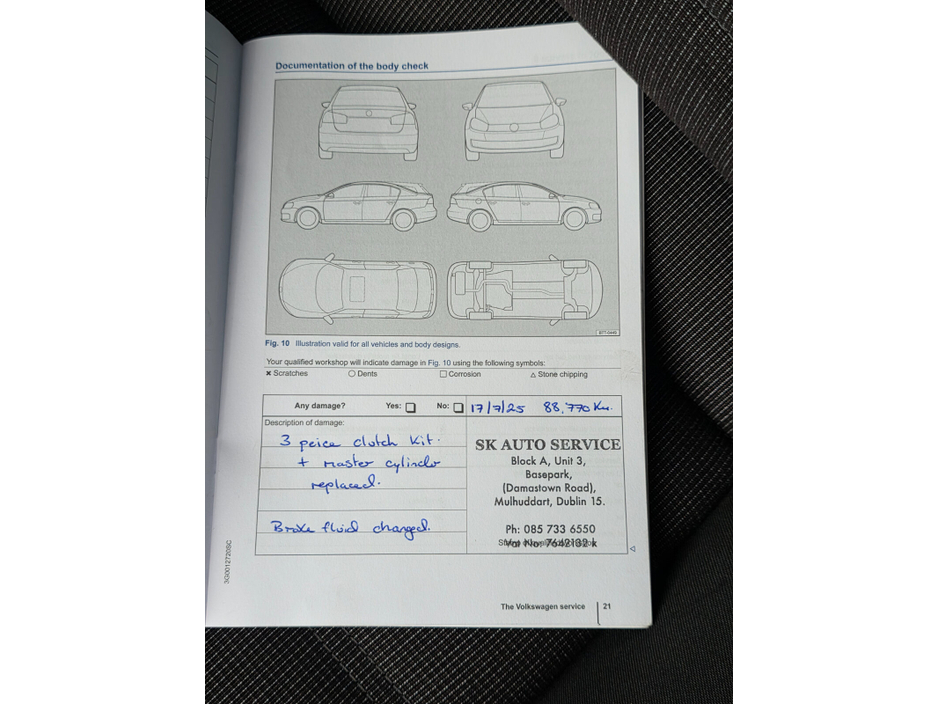 Documentation of the body check
B7T-0440
Fig. 10 Illustration valid for all vehicles and body designs.
Your qualified workshop will indicate damage in Fig. 10 using the following symbols:
✖ Scratches ○ Dents □ Corrosion △ Stone chipping
Any damage? Yes: □ No: □ 17/7/25 88,770 Km.
Description of damage:
3 peice clutch kit.
+ master cylinder
replaced.
Brake fluid changed.
SK AUTO SERVICE
Block A, Unit 3,
Basepark,
(Damastown Road),
Mulhuddart, Dublin 15.
Ph: 085 733 6550
Vat No: 7642132 k
◁
3G0012720SC
The Volkswagen service 21